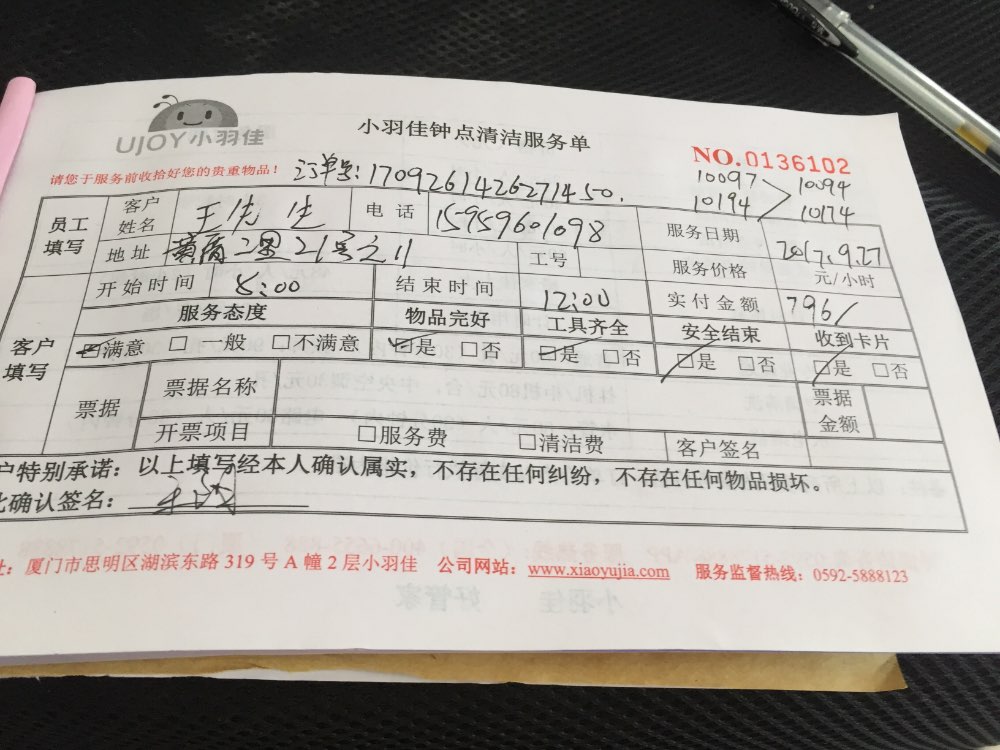 UJOY小羽佳
小羽佳钟点清洁服务单
NO.0136102
请您于服务前收拾好您的贵重物品！ 订单号：1709261426271450.
10097 10094
10194 10174
员工填写 客户姓名 王先生 电话 15959601098 服务日期 2017.9.27
地址 二里21号之11 工号 服务价格 元/小时
开始时间 8:00 结束时间 12:00 实付金额 796/
服务态度 物品完好 工具齐全 安全结束 收到卡片
客户填写 满意 一般 不满意 是 否 是 否 是 否 是 否
票据 票据名称 票据金额
开票项目 服务费 清洁费 客户签名
户特别承诺：以上填写经本人确认属实，不存在任何纠纷，不存在任何物品损坏。
此确认签名：
址：厦门市思明区湖滨东路 319 号 A 幢 2 层小羽佳 公司网站：www.xiaoyujia.com 服务监督热线：0592-5888123